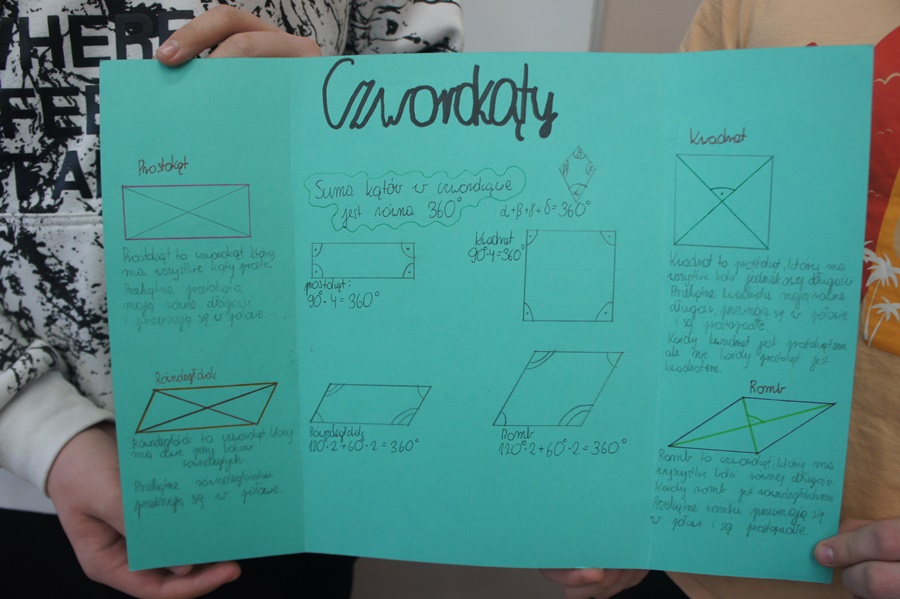 WHERE
FEE
TA
Czworokąty
Prostokąt
Prostokąt to czworokąt, który
ma wszystkie kąty proste.
Przekątne prostokąta
mają równe długości
i przecinają się w połowie.
Równoległobok
Równoległobok to czworokąt, który
ma dwie pary boków
równoległych.
Przekątne równoległoboku
przecinają się w połowie.
Suma kątów w czworokącie
jest równa 360°
α+β+γ+δ=360°
prostokąt:
90°·4=360°
Kwadrat
90°·4=360°
Równoległobok
120°·2+60°·2=360°
Romb
120°·2+60°·2=360°
Kwadrat
Kwadrat to prostokąt, który ma
wszystkie boki jednakowej długości
Przekątne kwadratu mają równe
długości, przecinają się w połowie
i są prostopadłe.
Każdy kwadrat jest prostokątem
ale nie każdy prostokąt jest
kwadratem.
Romb
Romb to czworokąt, który ma
wszystkie boki równej długości.
Każdy romb jest równoległobokiem
Przekątne rombu przecinają się
w połowie i są prostopadłe.